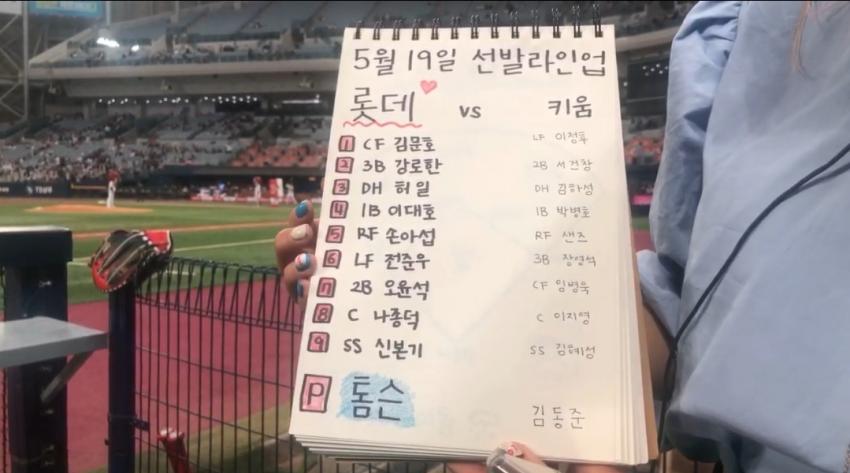 5월 19일 선발라인업
롯데 vs 키움
1 CF 김문호 LF 이정후
2 3B 강로한 2B 서건창
3 DH 허일 DH 김하성
4 1B 이대호 1B 박병호
5 RF 손아섭 RF 샌즈
6 LF 전준우 3B 장영석
7 2B 오윤석 CF 임병욱
8 C 나종덕 C 이지영
9 SS 신본기 SS 김혜성
P 톰슨 김동준